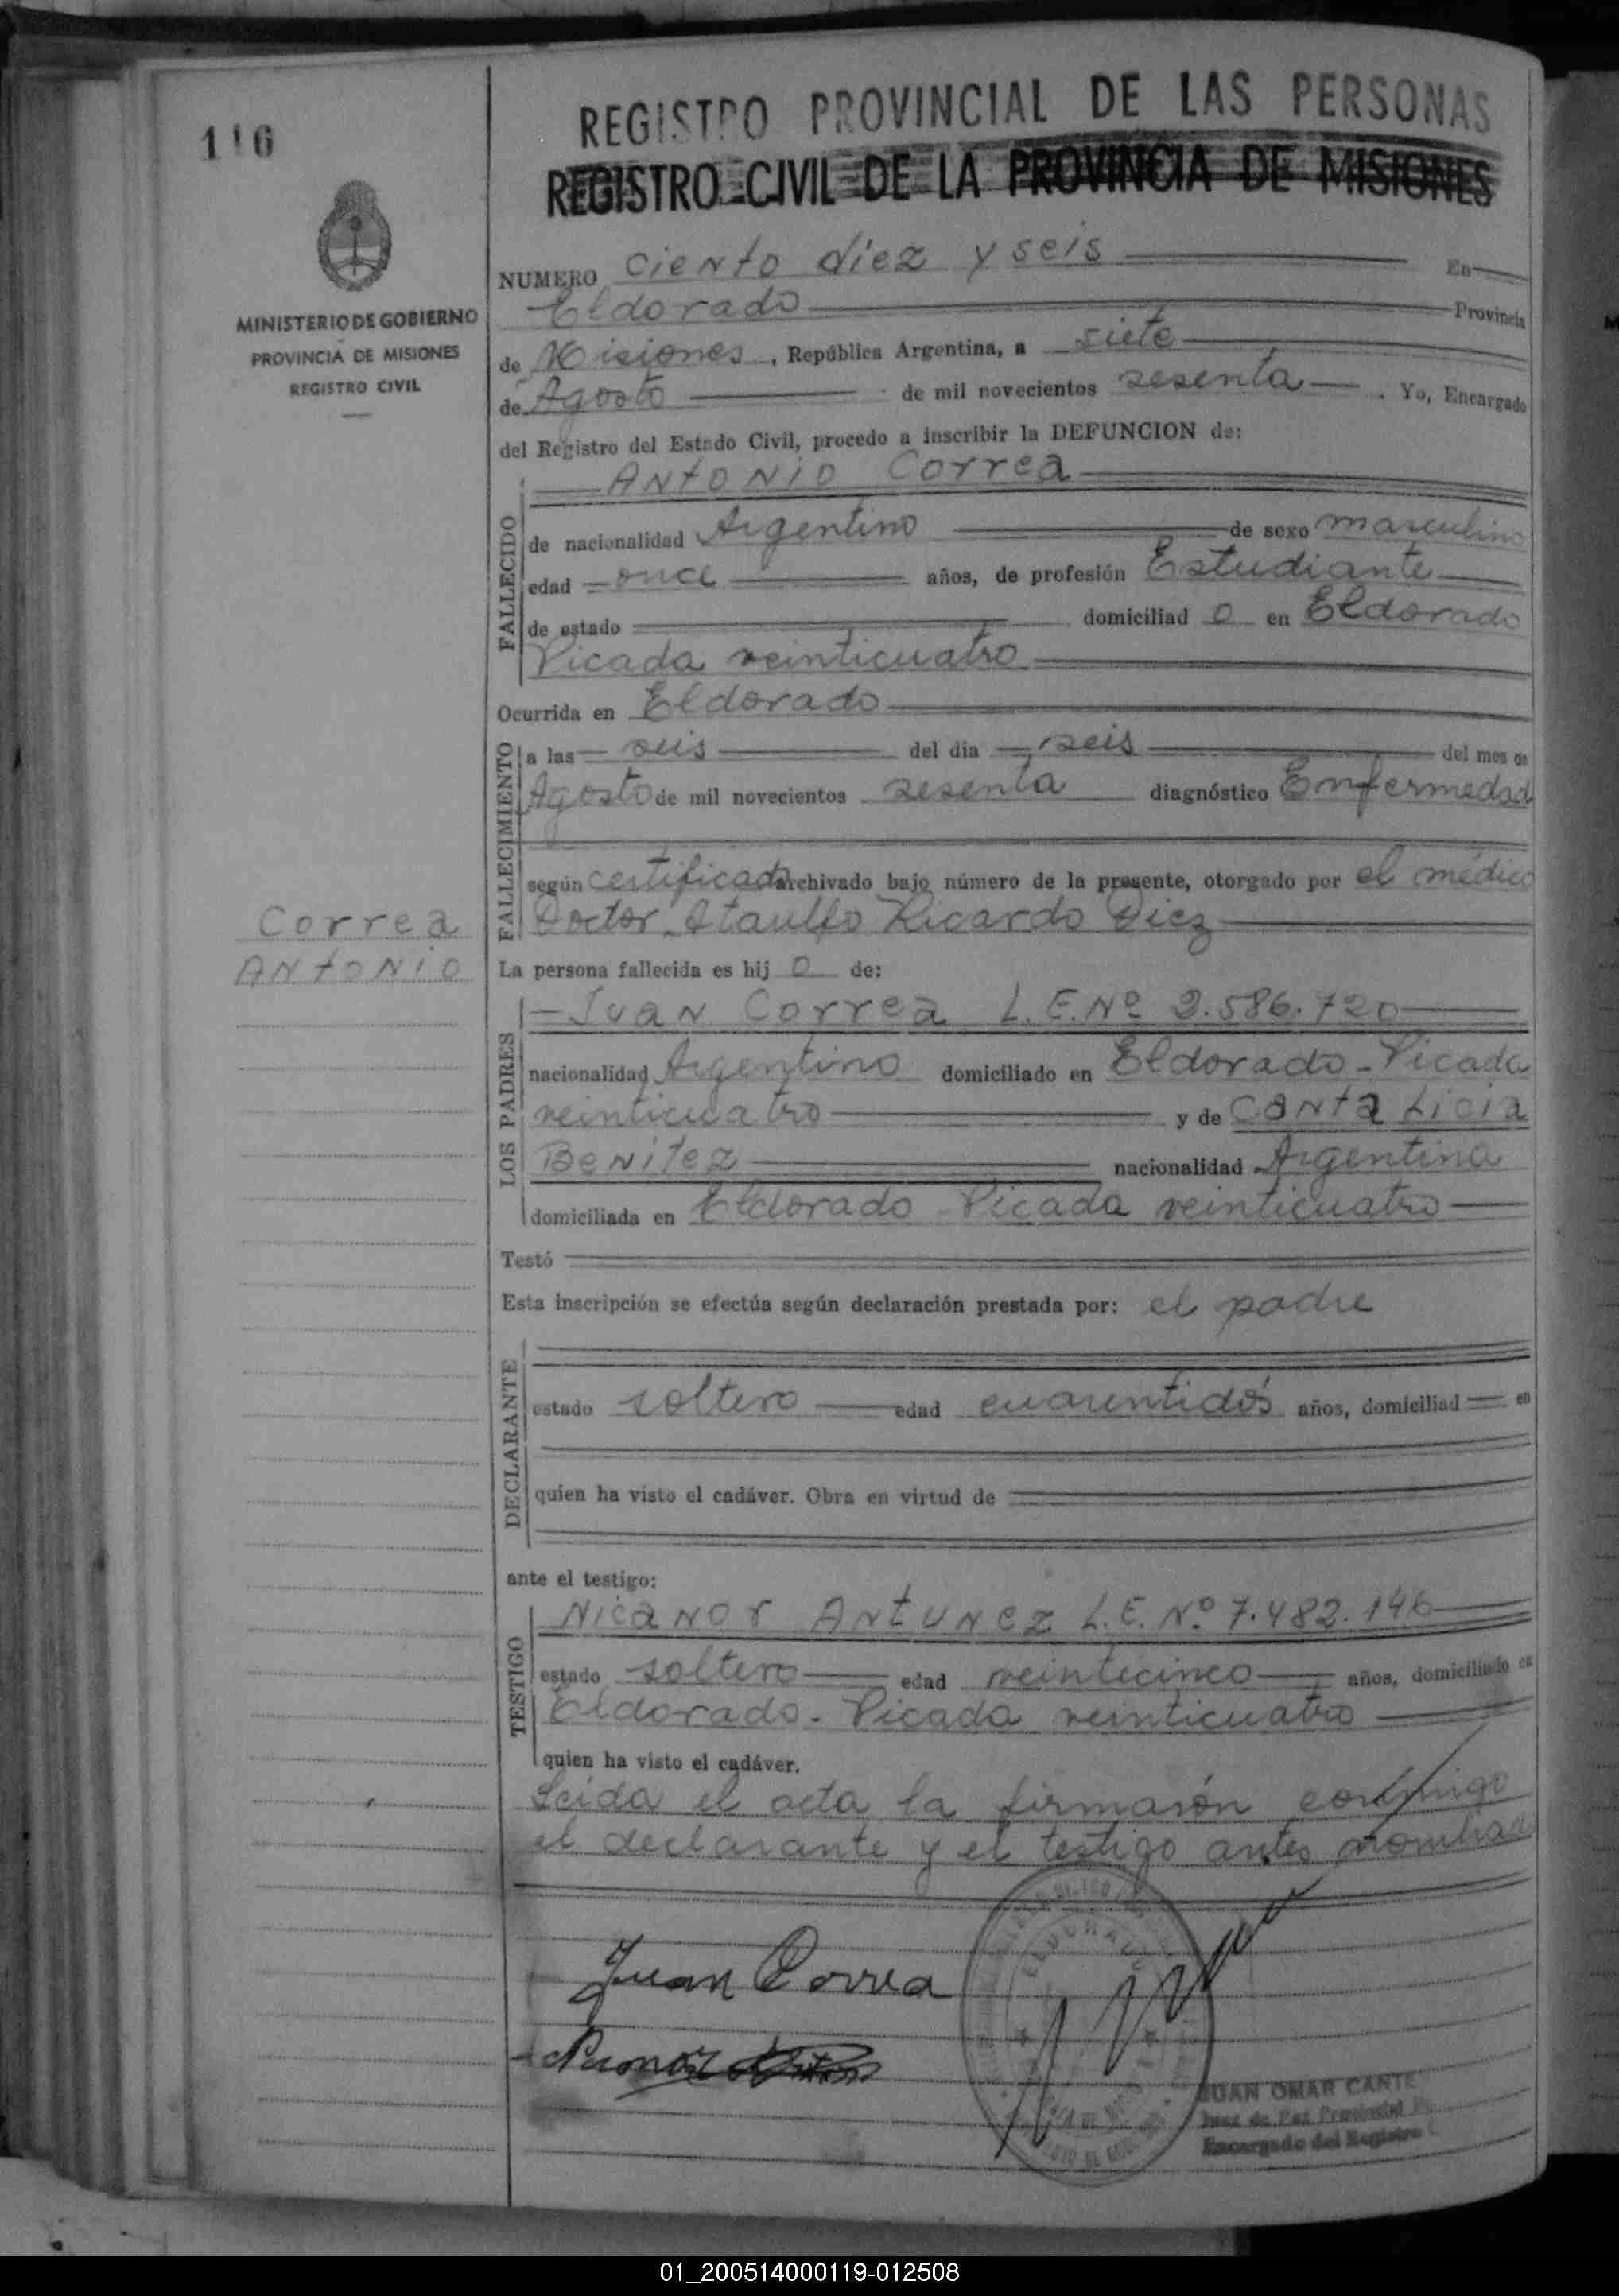 116
REGISTRO PROVINCIAL DE LAS PERSONAS
REGISTRO CIVIL DE LA PROVINCIA DE MISIONES
MINISTERIO DE GOBIERNO
PROVINCIA DE MISIONES
REGISTRO CIVIL
NUMERO Ciento diez y seis En
Eldorado Provincia
de Misiones, República Argentina, a siete
de Agosto de mil novecientos sesenta. Yo, Encargado
del Registro del Estado Civil, procedo a inscribir la DEFUNCION de:
ANTONIO Correa
FALLECIDO
de nacionalidad Argentino de sexo masculino
edad once años, de profesión Estudiante
de estado domiciliad o en Eldorado
Picada veinticuatro
Ocurrida en Eldorado
FALLECIMIENTO
a las seis del dia seis del mes de
Agosto de mil novecientos sesenta diagnóstico Enfermedad
según certificado archivado bajo número de la presente, otorgado por el médico
Doctor Ataulfo Ricardo Diez
Correa
ANTONIO
La persona fallecida es hij o de:
LOS PADRES
Juan Correa L.E.Nº 2.586.720
nacionalidad Argentino domiciliado en Eldorado - Picada
veinticuatro y de CANTA Licia
Benitez nacionalidad Argentina
domiciliada en Eldorado Picada veinticuatro
Testó
Esta inscripción se efectúa según declaración prestada por: el padre
DECLARANTE
estado soltero edad cuarentidós años, domiciliad en
quien ha visto el cadáver. Obra en virtud de
ante el testigo:
TESTIGO
Nicanor Antunez L.E. Nº 7.482.146
estado soltero edad veintecinco años, domiciliado en
Eldorado - Picada veinticuatro
quien ha visto el cadáver.
Leída el acta la firmarón conmigo
el declarante y el testigo antes
Juan Correa
JUAN OMAR CANTE
Juez de Paz Provincial
Encargado del Registro
01_200514000119-012508